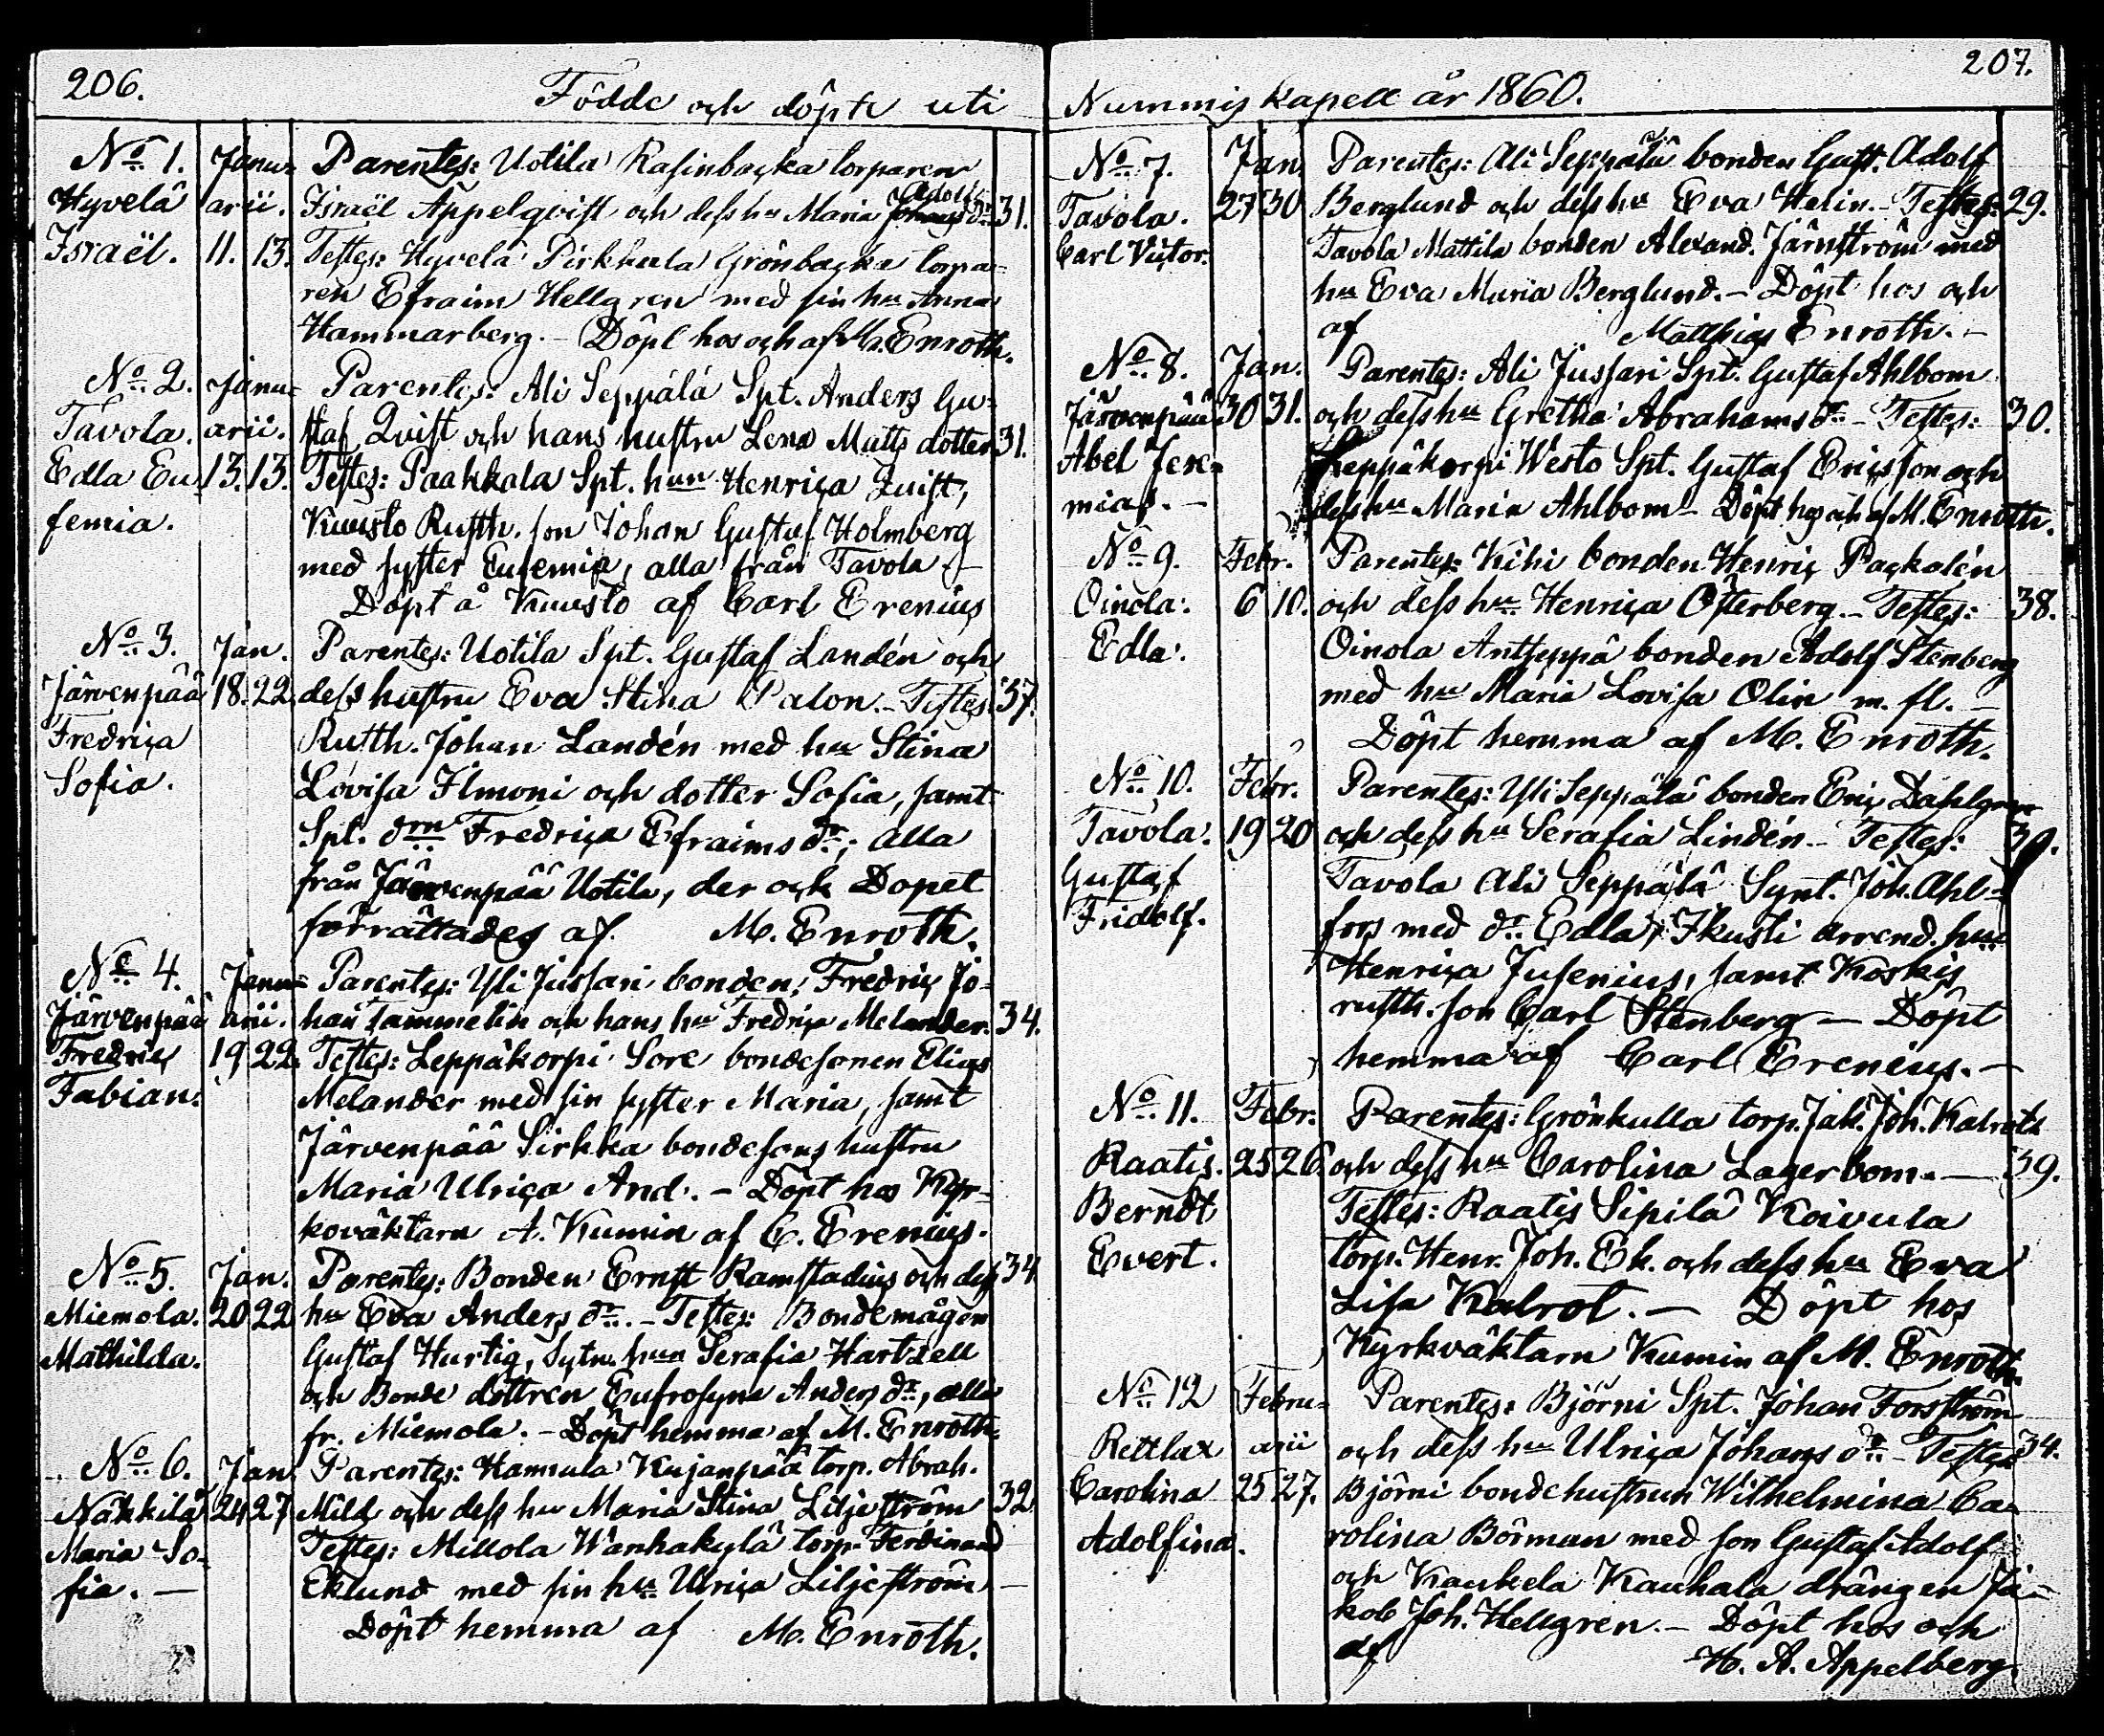 206.
Födde och döpte uti
No 1. Janu- Parentes: Uotila Rasinbacka torparen
Hyvelä arii. Israël Appelqvist och dess hu Maria Johans Adolfs dr 31.
Israël. 11. 13. Testes: Hyvelä Pirkkala Grönbacka torpa-
ren Efraim Hellgren med sin hu Anna
Hammarberg. – Döpt hos och af M. Enroth.
No 2. Janu- Parentes: Ali Seppälä Spt. Anders Gu-
Tavola. arii. staf Qvist och hans hustru Lena Matts dotter 31.
Edla Eu- 13. 13. Testes: Paakkala Spt. hun Henrica Quist,
femia. Kuusto Rustth. son Johan Gustaf Holmberg
med syster Eufemia, alla från Tavola. –
Döpt å Kuusto af Carl Erenius
No 3. Jan. Parentes: Uotila Spt. Gustaf Landén och
Järvenpää 18. 22. dess hustru Eva Stina Palon. – Testes: 37.
Fredrica Rustth. Johan Landén med hu Stina
Sofia. Lovisa Ilmoni och dotter Sofia, samt
Spt. drn Fredrica Efraims dr; alla
från Järvenpää Uotila, der ock Dopet
förrättades af. M. Enroth.
No 4. Janu- Parentes: Yli Jussari bonden; Fredric Jo-
Järvenpää arii. han Tammelin och hans hu Fredrica Melander. 34.
Fredric 19 22. Testes: Leppäkorpi Sore bondesonen Elias
Fabian. Melander med sin syster Maria, samt
Järvenpää Sirkka bondesons hustru
Maria Ulrica And. – Döpt hos Kyr-
koväktarn A. Kumin af C. Erenius.
No 5. Jan. Parentes: Bonden Ernst Ramstadius och dess 34
Miemola. 20 22 hu Eva Anders dr. – Testes: Bondemågen
Mathilda. Gustaf Hurtig, Sytn. hun Serafia Hartzell
och Bonde dottren Eufrosyna Anders dr, alla
fr. Miemola. – Döpt hemma af M. Enroth.
No 6. Jan. Parentes: Hannula Kujanpää torp. Abrah.
Nakkila 24 27 Mild och dess hu Maria Stina Liljeström 32
Maria So- Testes: Millola Wanhakylä torp. Ferdinand
fia. – Eklund med sin hu Ulrica Liljeström –
Döpt hemma af M. Enroth.
207.
Nummis kapell år 1860.
No 7. Jan. Parentes: Ali Seppälä bonden Gust. Adolf
Tavola. 27 30 Berglund och dess hu Eva Helin. – Testes: 29.
Carl Victor. Tavola Mattila bonden Alexand. Järnström med
hu Eva Maria Berglund. – Döpt hos och
af Matthias Enroth. –
No 8. Jan. Parentes: Ali Jussari Spt. Gustaf Ahlbom
Järvenpää 30 31. och dess hu Gretha Abrahams dr – Testes: 30.
Abel Jere- Leppäkorpi Westo Spt. Gustaf Ericsson och
mias. – dess hu Maria Ahlbom – Döpt hos och af M. Enroth.
No 9. Febr. Parentes: Kihi bonden Henric Packalén
Oinola. 6 10. och dess hu Henrica Österberg. – Testes: 38.
Edla. Oinola Antseppä bonden Adolf Stenberg
med hu Maria Lovisa Olin m. fl. –
Döpt hemma af M. Enroth.
No 10. Febr. Parentes: Yli Seppälä bonden Eric Dahlgren
Tavola. 19 20 och dess hu Serafia Lindén – Testes: 30.
Gustaf Tavola Ali Seppälä Synt. Joh. Ahl-
Fridolf. fors med dr Edla, Ikusti arrend. hun
Henrica Jusenius, samt Koskis
rustth. son Carl Stenberg – Döpt
hemma af Carl Erenius. –
No 11. Febr. Parentes: Grönkulla torp. Jak. Joh. Kalroth
Raatis. 25 26. och dess hu Carolina Lagerbom. – 39.
Berndt Testes: Raatis Sipilä Koivula
Evert. torp. Henr. Joh. Ek. och dess hu Eva
Lisa Kalrot. – Döpt hos
Kyrkväktarn Kumin af M. Enroth.
No 12 Febru- Parentes: Björni Spt. Johan Forsström
Rettlax arii och dess hu Ulrica Johans dr – Testes 34.
Carolina 25 27. Björni bondehustrun Wilhelmina Ca-
Adolfina. rolina Börman med son Gustaf Adolf
och Kaukela Kauhala drängen Ja-
kob Joh. Hellgren. – Döpt hos och
af H. A. Appelberg.